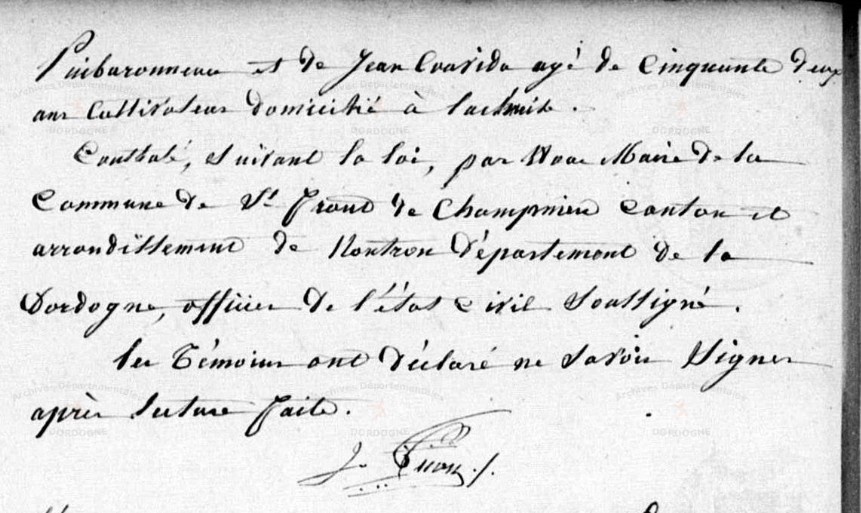 Puibaronneau et de Jean age de Cinquante deux
ans Cultivateur domicilié à
Constaté, Suivant la loi, par Nous Maire de la
Commune de St Front de Champniers Canton et
arrondissement de Nontron Département de la
Dordogne, officier de l'état Civil Soussigné.
les Témoins ont déclaré ne Savoir Signer
après lecture faite.
J.